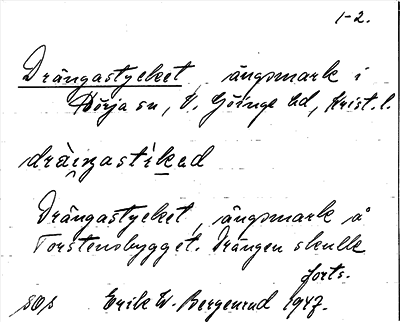 1-2.
Drängastycket, ängsmark i
Börja sn, V. Göinge hd, Krist. l.
dräiŋastikəd
Drängastycket, ängsmark å
Torstensbygget. Drängen skulle
forts.
Erik W. Bergenrud 1947.